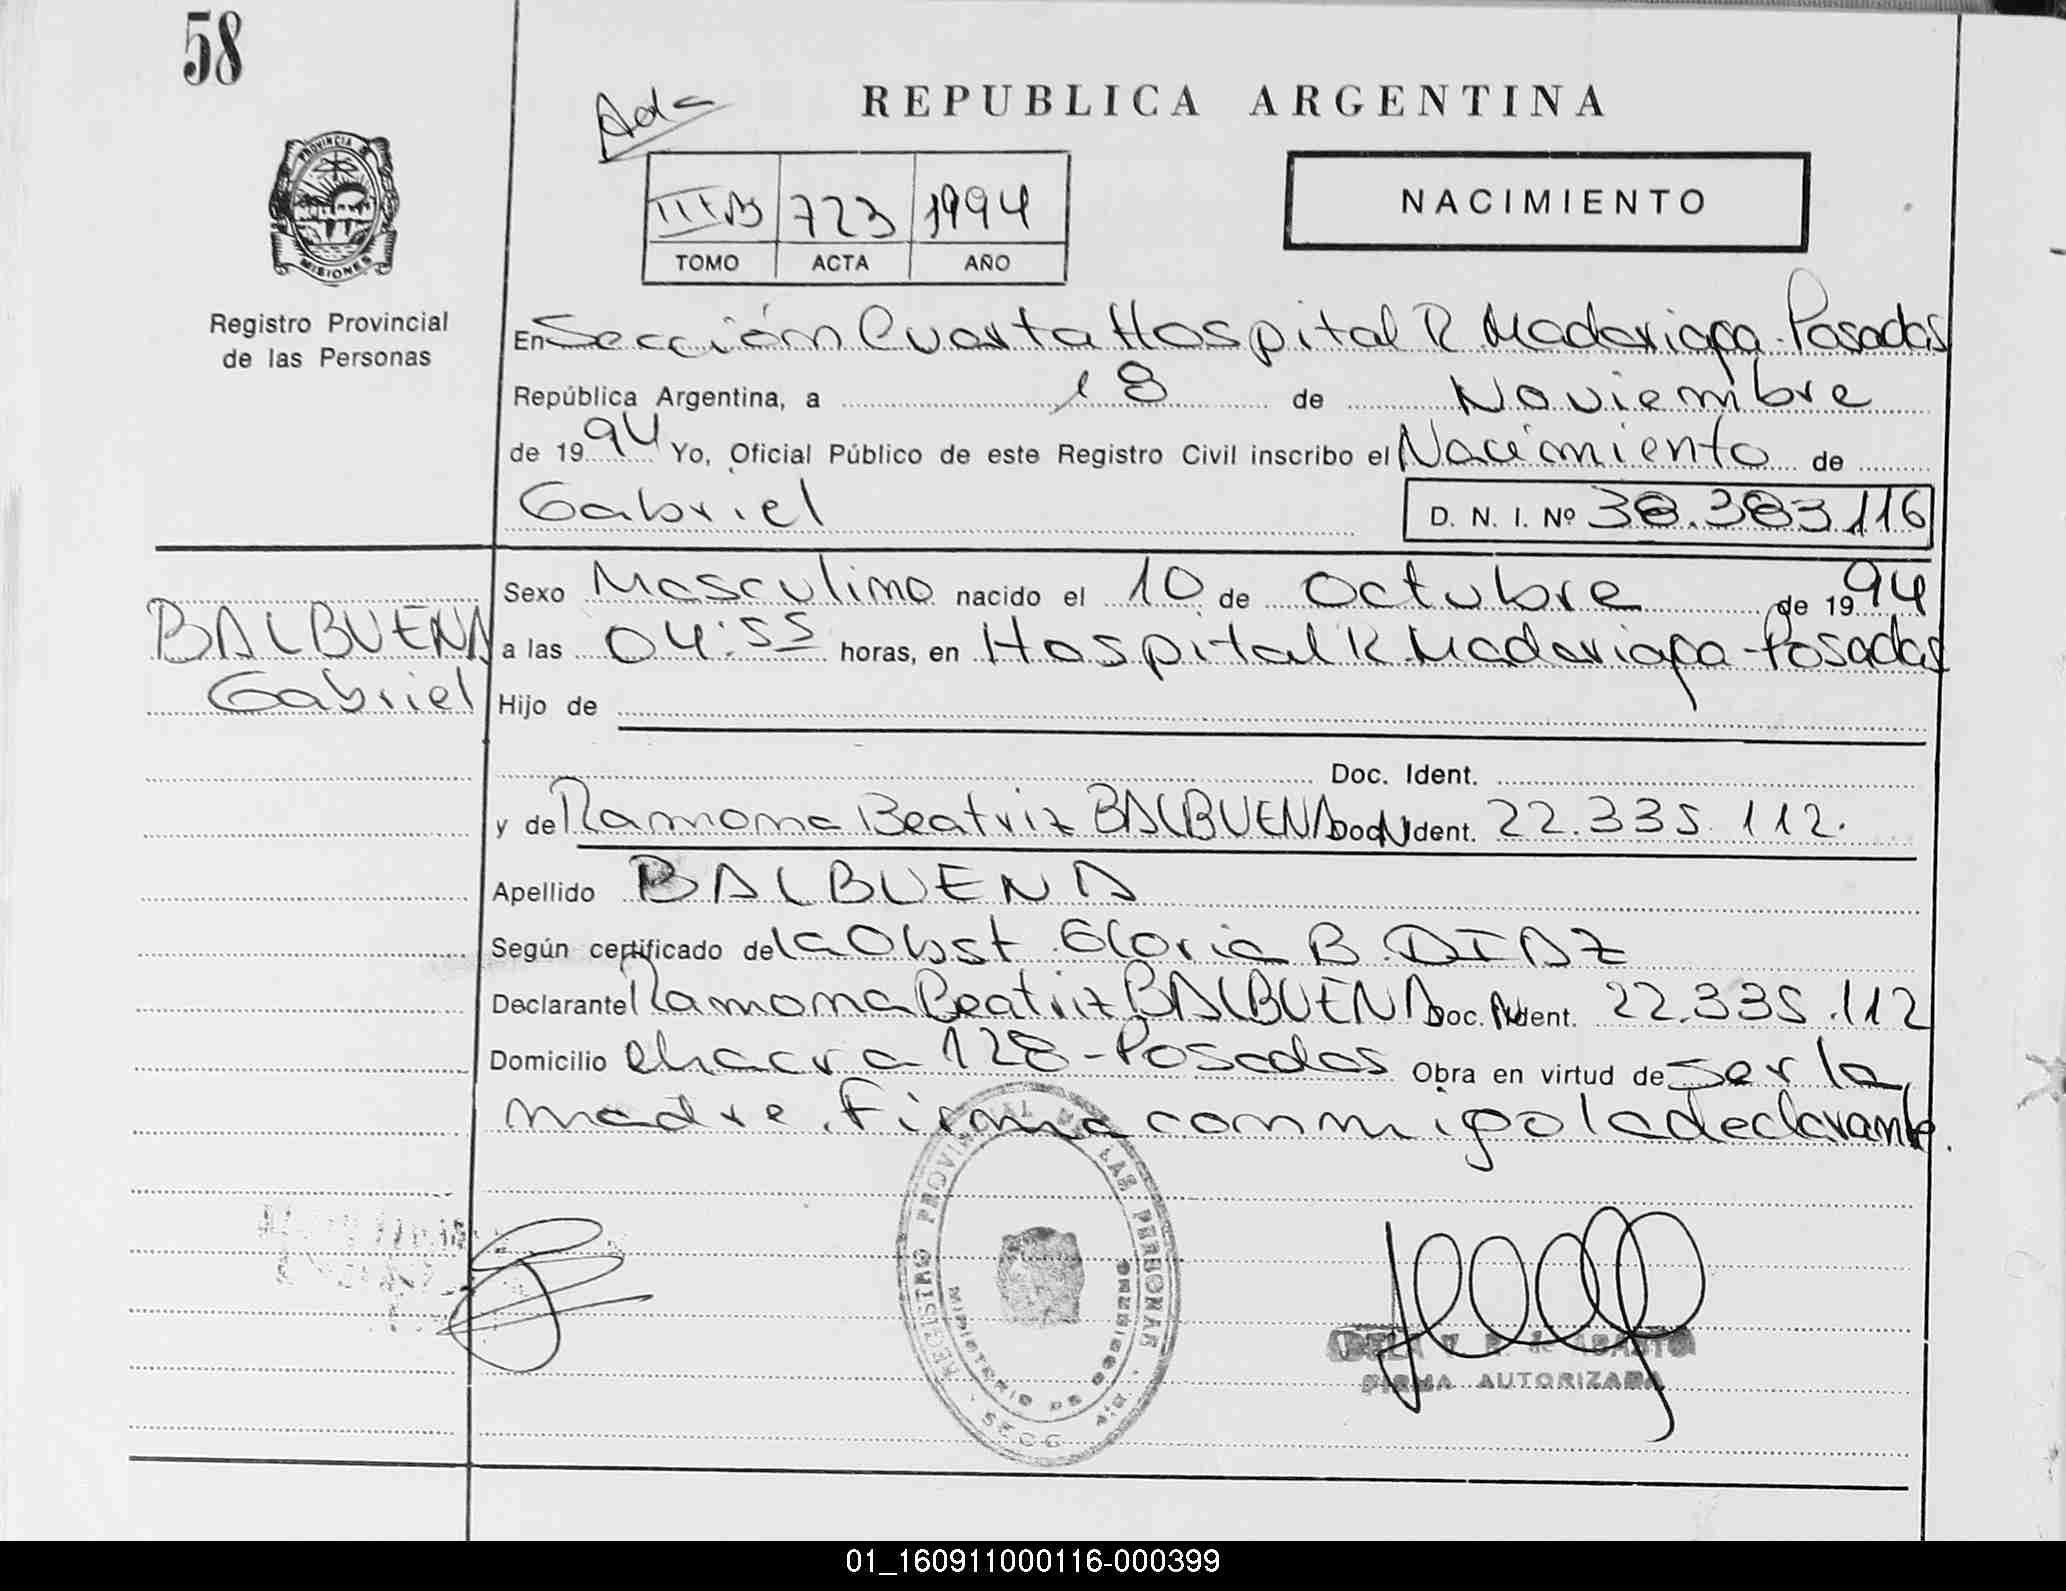 58
Ada
REPUBLICA ARGENTINA
PROVINCIA DE
MISIONES
Registro Provincial
de las Personas
IIIB 723 1994
TOMO ACTA AÑO
NACIMIENTO
En Sección Cuarta Hospital R Madariaga - Posadas
República Argentina, a 18 de Noviembre
de 1994 Yo, Oficial Público de este Registro Civil inscribo el Nacimiento de
Gabriel D. N. I. Nº 38.383.116
Sexo Masculino nacido el 10 de Octubre de 1994
BALBUENA
a las 04:55 horas, en Hospital R. Madariaga - Posadas
Gabriel
Hijo de
Doc. Ident.
y de Ramona Beatriz BALBUENA Doc. Ident. 22.335.112.
Apellido BALBUENA
Según certificado de la Obst. Gloria B. DIAZ
Declarante Ramona Beatriz BALBUENA Doc. Ident. 22.335.112
Domicilio chacra 128 - Posadas Obra en virtud de ser la
madre. Firma conmigo la declarante.
REGISTRO PROVINCIAL DE LAS PERSONAS
MINISTERIO DE GOBIERNO
SECC
FIRMA AUTORIZADA
01_160911000116-000399